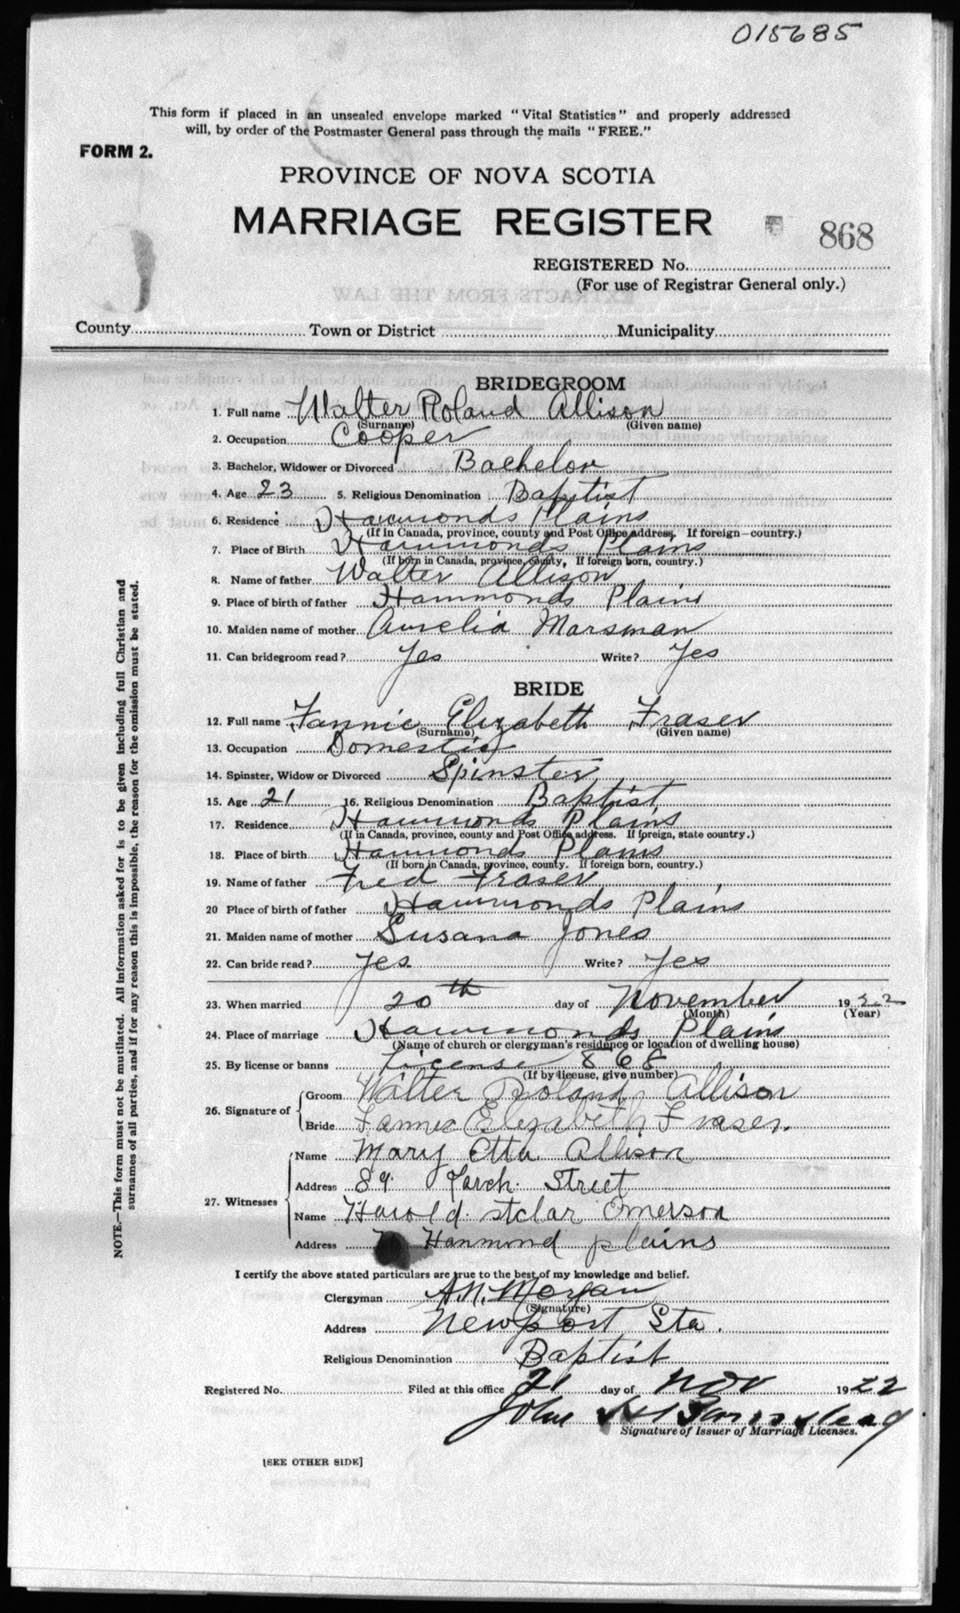 015685
This form if placed in an unsealed envelope marked "Vital Statistics" and properly addressed
will, by order of the Postmaster General pass through the mails "FREE."
FORM 2.
PROVINCE OF NOVA SCOTIA
MARRIAGE REGISTER
868
REGISTERED No.
(For use of Registrar General only.)
County Town or District Municipality
BRIDEGROOM
1. Full name Walter Roland Allison
(Surname) (Given name)
2. Occupation Cooper
3. Bachelor, Widower or Divorced Bachelor
4. Age 23 5. Religious Denomination Baptist
6. Residence Hammonds Plains
(If in Canada, province, county and Post Office address. If foreign—country.)
7. Place of Birth Hammonds Plains
(If born in Canada, province, county. If foreign born, country.)
8. Name of father Walter Allison
9. Place of birth of father Hammonds Plains
10. Maiden name of mother Aurelia Marsman
11. Can bridegroom read? Yes Write? Yes
BRIDE
12. Full name Fannie Elizabeth Fraser
(Surname) (Given name)
13. Occupation Domestic
14. Spinster, Widow or Divorced Spinster
15. Age 21 16. Religious Denomination Baptist
17. Residence Hammonds Plains
(If in Canada, province, county and Post Office address. If foreign, state country.)
18. Place of birth Hammonds Plains
(If born in Canada, province, county. If foreign born, country.)
19. Name of father Fred Fraser
20 Place of birth of father Hammonds Plains
21. Maiden name of mother Susana Jones
22. Can bride read? Yes Write? Yes
23. When married 20th day of November 1922
(Month) (Year)
24. Place of marriage Hammonds Plains
(Name of church or clergyman's residence or location of dwelling house)
25. By license or banns License 868
(If by license, give number)
26. Signature of
Groom Walter Roland Allison
Bride Fannie Elizabeth Fraser.
27. Witnesses
Name Mary Etta Allison
Address 89 Street
Name Harold stclar Emerson
Address Hanmond plains
I certify the above stated particulars are true to the best of my knowledge and belief.
Clergyman A.N. Morgan
(Signature)
Address Newport Sta.
Religious Denomination Baptist
Registered No. Filed at this office 21 day of Nov 1922
John
Signature of Issuer of Marriage Licenses.
[SEE OTHER SIDE]
NOTE.—This form must not be mutilated. All information asked for is to be given including full Christian and
surnames of all parties, and if for any reason this is impossible, the reason for the omission must be stated.